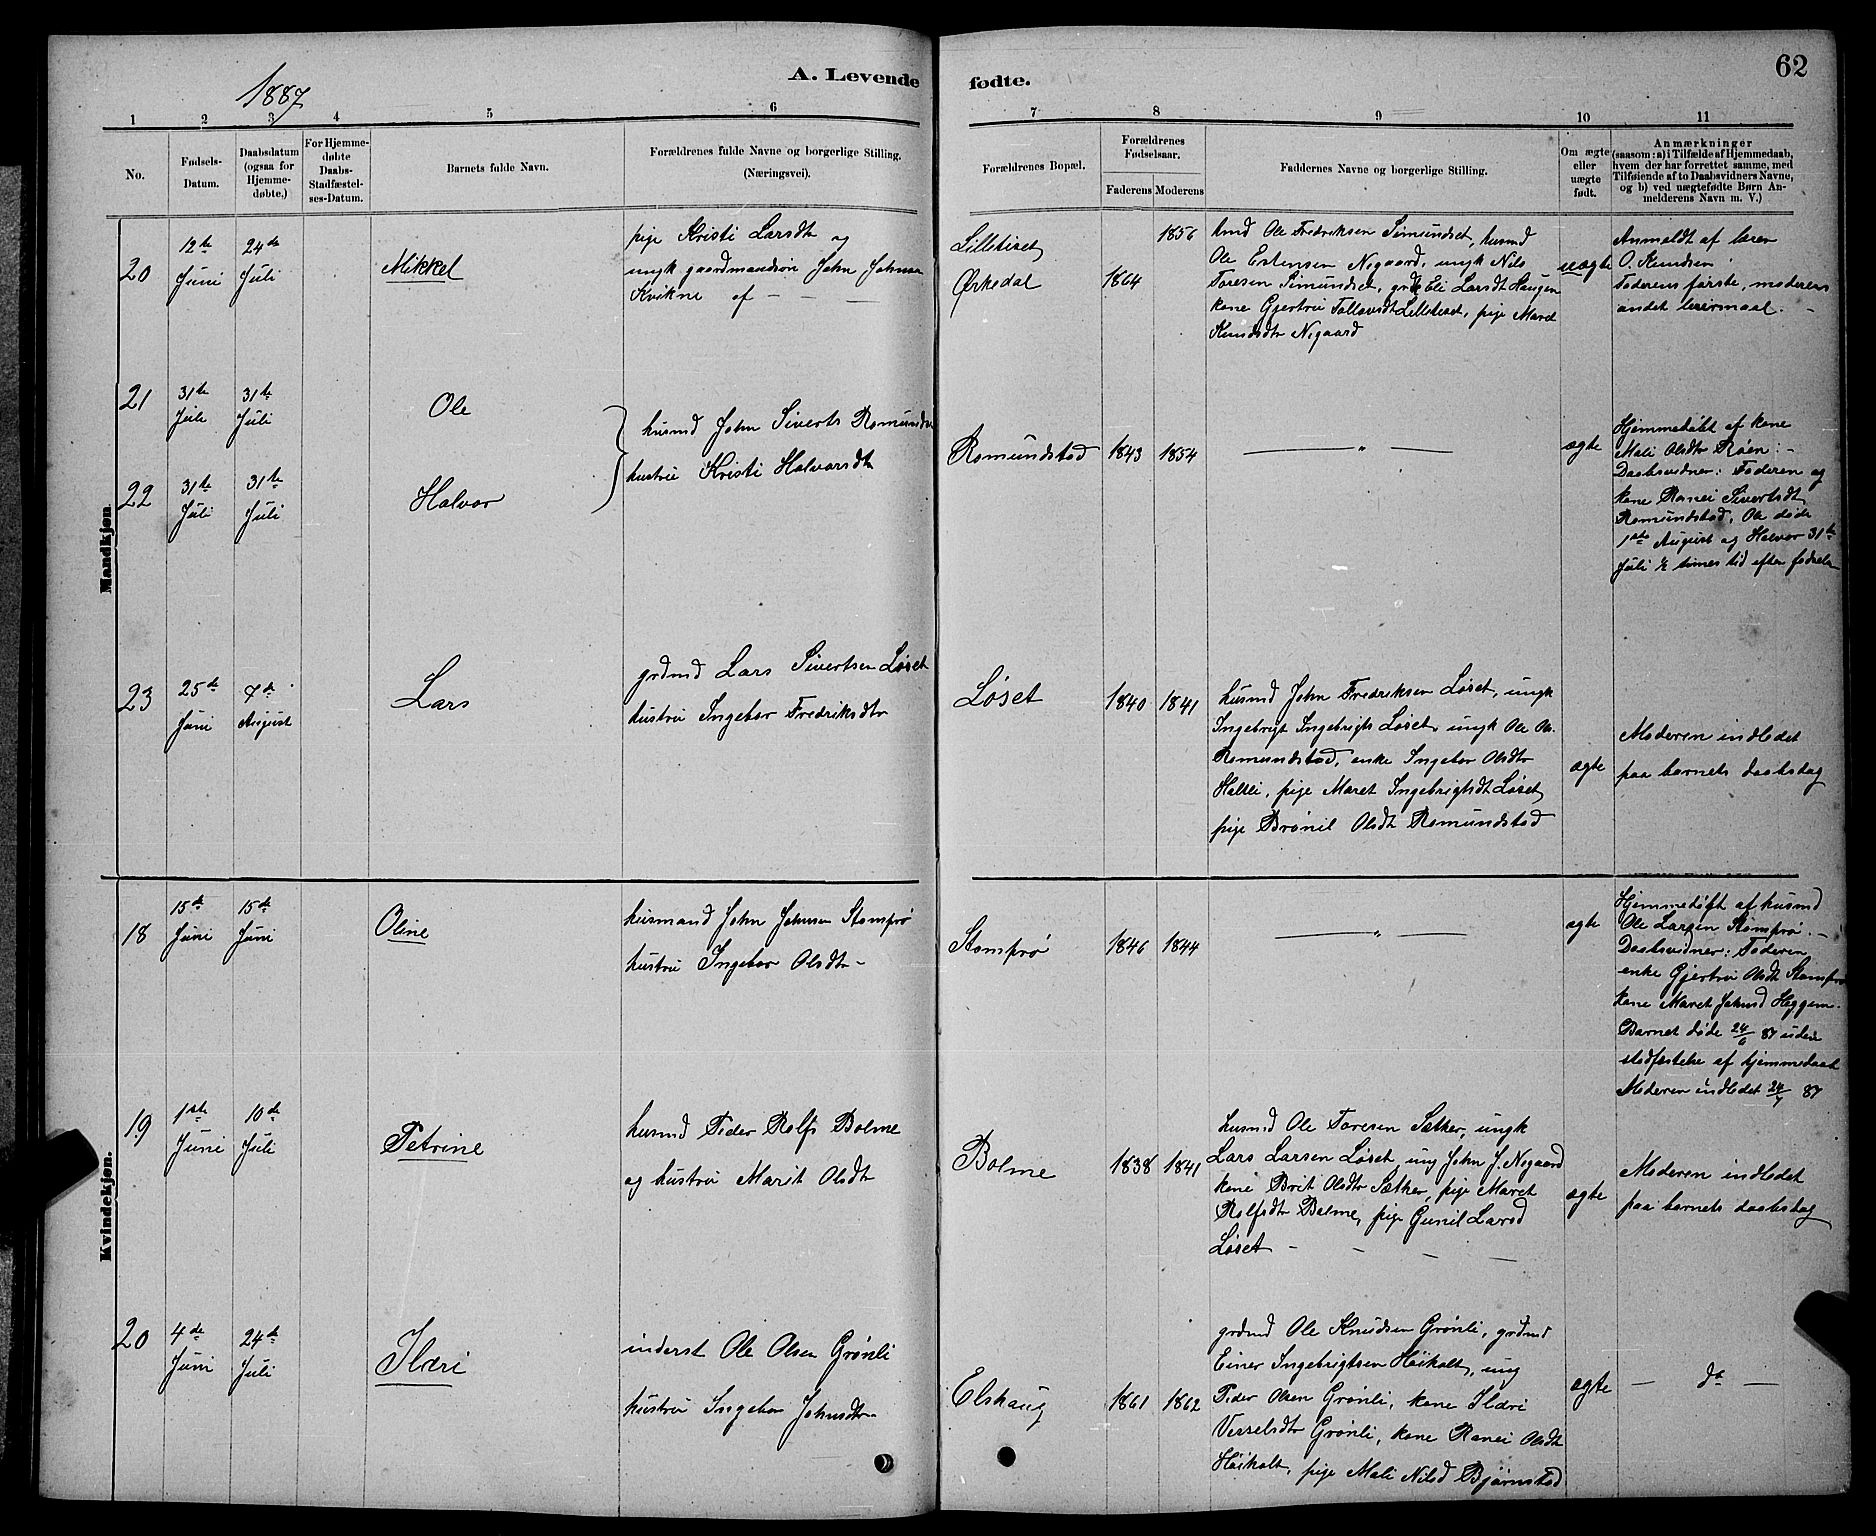 1887
A. Levende
fødte.
62
1 2 3 4 5 6 7 8 9 10 11
No.
Fødsels-
Datum.
Daabsdatum
(ogsaa for
Hjemme-
døbte.)
For Hjemme-
døbte
Daabs-
Stadfæstel-
ses-Datum.
Barnets fulde Navn.
Forældrenes fulde Navne og borgerlige Stilling.
(Næringsvei).
Forældrenes Bopæl.
Forældrenes
Fødselsaar.
Faderens Moderens
Faddernes Navne og borgerlige Stilling.
Om ægte
eller
uægte
født.
Anmærkninger
(saasom: a) i Tilfælde af Hjemmedaab,
hvem der har forrettet samme, med
Tilføiende af to Daabsvidners Navne,
og b) ved uægtefødte Børn An-
melderens Navn m. V.)
Mandkjøn.
20
12te
Juni
24de
Juli
Mikkel
pige Kristi Larsdtr og
ungk gaardmandssön John Johnsen
Kvikne af – – –
Lilletiset
Ørkedal
1864
1856
husmd Ole Fredriksen Simundset, husmd
Ole Estensen Nigaard, ungk Nils
Toresen Simundset, grdk Eli Larsdt Haugen
kone Gjertru Tollevsdt Lilletiset, pige Maret
Knudsdtr Nigaard
uægte
Anmeldt af lærer
O. Knudsen
Faderens første, moderens
andet leiermaal. –
21
31te
Juli
31te
Juli
Ole
22
31te
Juli
31te
Juli
Halvor
husmd John Siverts Romunds
hustru Kristi Halvorsdtr
Romundstad
1843 1854
— „ —
ægte
Hjemmedøbt af kone
Mali Olsdtr Røen: –
Daabsvidner: Faderen og
kone Ranei Sivertsdt
Romundstad. Ole døde
1ste August og Halvor 31te
Juli ½ times tid efter fødselen
23
25de
Juni
7de
August
Lars
grdmd Lars Sivertsen Løset
hustru Ingebor Fredriksdtr
Løset
1840 1841
husmd John Fredriksen Løset, ungk
Ingebrigt Ingebrigts Løset, ungk Ole Ols.
Romundstad, enke Ingebor Olsdtr
Halsli, pige Maret Ingebrigtsdt Løset,
pige Brønil Olsdt Romundstad
ægte
Moderen indledet
paa barnets daabsdag
Kvindekjøn.
18
15de
Juni
15de
Juni
Oline
husmand John Johnsen Stomprø
hustru Ingebor Olsdtr –
Stomprø
1846 1844
— „ —
ægte
Hjemmedøbt af husmd
Ole Larsen Stomprø. –
Daabsvidner: Faderen
enke Gjertru Olsdt Stomprø
kone Maret Johnsd Heggem.
Barnet døde 24/6 87 uden
stadfæstelse af hjemmedaab
Moderen indledet 24/7 87
19
1ste
Juni
10de
Juli
Petrine
husmd Peder Rolfs Bolme
og hustru Marit Olsdt
Bolme
1838 1841
husmd Ole Toresen Sæther, ungk
Lars Larsen Løset, ung John J. Nigaard
kone Brit Olsdtr Sæther, pige Maret
Rolfsdtr Bolme, pige Gunil Larsd
Løset – – – –
ægte
Moderen indledet
paa barnets daabsdag
20
4de
Juni
24de
Juli
Ildri
inderst Ole Olsen Grønli
hustru Ingebor Johnsdtr
Elshaug
1861 1862
grdmd Ole Knudsen Grønli, grdmd
Einer Ingebrigtsen Høiholt, ung
Peder Olsen Grønli, kone Ildri
Vesselsdtr Grønli, kone Ranei Olsdt
Høiholt, pige Mali Nilsd Bjørnstad
ægte
— do —